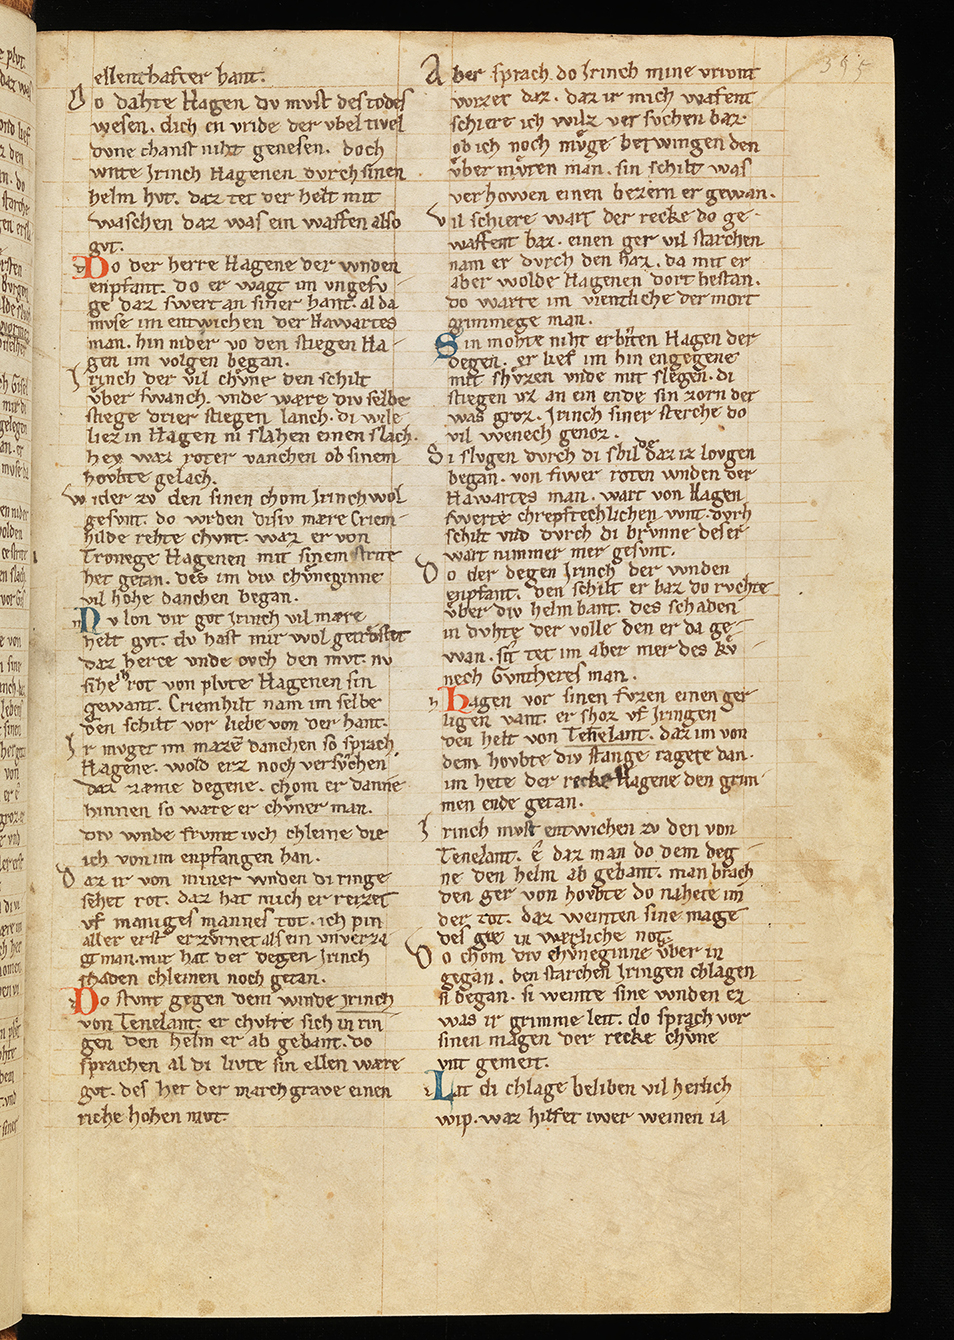 ellenthafter hant.
Do dahte Hagen dv mvst des todes
wesen. dich en vride der vbel tivel
dvne chanst niht genesen. Doch
wnte Irinch Hagenen dvrch sinen
helm hvt. daz tet der helt mit
waschen daz was ein waffen also
gvt.
Do der herre Hagene der wnden
enpfant. do er wagt im vngefv
ge daz swert an siner hant. al da
mvse im entwichen der Hawartes
man. hin nider vo den stiegen Ha
gen im volgen began.
Irinch der vil chvne den schilt
vber swanch. vnde wære div selbe
stiege drier stiegen lanch. di wile
liez in Hagen ni slahen einen slach.
hey waz roter vanchen ob sinem
hovbte gelach.
wider zv den sinen chom Irinch wol
gesvnt. do wrden disiv mære Criem
hilde rehte chvnt. waz er von
Tronege Hagenen mit sinem strite
het getan. des im div chvneginne
vil hohe danchen began.
Nv lon dir got Irinch vil mære
helt gvt. dv hast mir wol getrostet
daz herce vnde ovch den mvt. nv
sihe ich rot von plvte Hagenen sin
gewant. Criemhilt nam im selbe
den schilt vor liebe von der hant.
Ir mvget im maze danchen so sprach
Hagene. wold erz noch versvchen
daz zæme degene. chom er danne
hinnen so wære er chvner man.
div wnde frvmt ivch chleine die
ich von im enpfangen han.
Daz ir von miner wnden di ringe
sehet rot. daz hat mich er reizet
vf maniges mannes tot. ich pin
aller erst erzvrnet als ein vnverza
gt man. mir hat der degen Irinch
schaden chleinen noch getan.
Do stvnt gegen dem winde Irinch
von Tenelant. er chvlte sich in rin
gen den helm er ab gebant. do
sprachen al di livte sin ellen ware
gvt. des het der marchgrave einen
riche hohen mvt.
Aber sprach do Irinch mine vrivnt
wizzet daz. daz ir mich wafent
schiere ich wilz ver svchen baz
ob ich noch mvge betwingen den
vber mvten man. sin schilt was
verhowen einen bezern er gewan.
vil schiere wart der recke do ge
waffent baz. einen ger vil starchen
nam er dvrch den haz. da mit er
aber wolde Hagenen dort bestan.
do warte im vientliche der mort
grimmege man.
Sin mohte niht erbiten Hagen der
degen. er lief im hin engegene
mit shvzen vnde mit slegen. di
stiegen vz an ein ende sin zorn der
was groz. Irinch siner sterche do
vil wenech genoz.
Si slvgen dvrch di shilde daz iz lovgen
began. von fiwer roten winden der
Hawartes man. wart von Hagen
swerte chrepftechlichen wnt. dvrh
schilt vnd dvrch di brvnne des er
wart nimmer mer gesvnt.
Do der degen Irinch der wnden
enpfant. den schilt er baz do rvchte
vber div helm bant. des schaden
in dvhte der volle den er da ge
wan. sit tet im aber mer des kv
nech Gvntheres man.
Hagen vor sinen fvzen einen ger
ligen vant. er shoz vf Iringen
den helt von Tenelant. daz im von
dem hovbte div stange ragete dan.
im hete der recke Hagene den grim
men ende getan.
Irinch mvst entwichen zv den von
Tenelant. e daz man do dem deg
ne den helm ab gebant. man brach
den ger von hovbte do nahete im
der tot. daz weinten sine mage
des gie in wærliche not.
Do chom div chvneginne vber in
gegan. den starchen Iringen chlagen
si began. si weinte sine wnden ez
was ir grimme leit. do sprach vor
sinen magen der recke chvne
vnt gemeit.
Lat di chlage beliben vil herlich
wip. waz hilfet iwer weinen ia